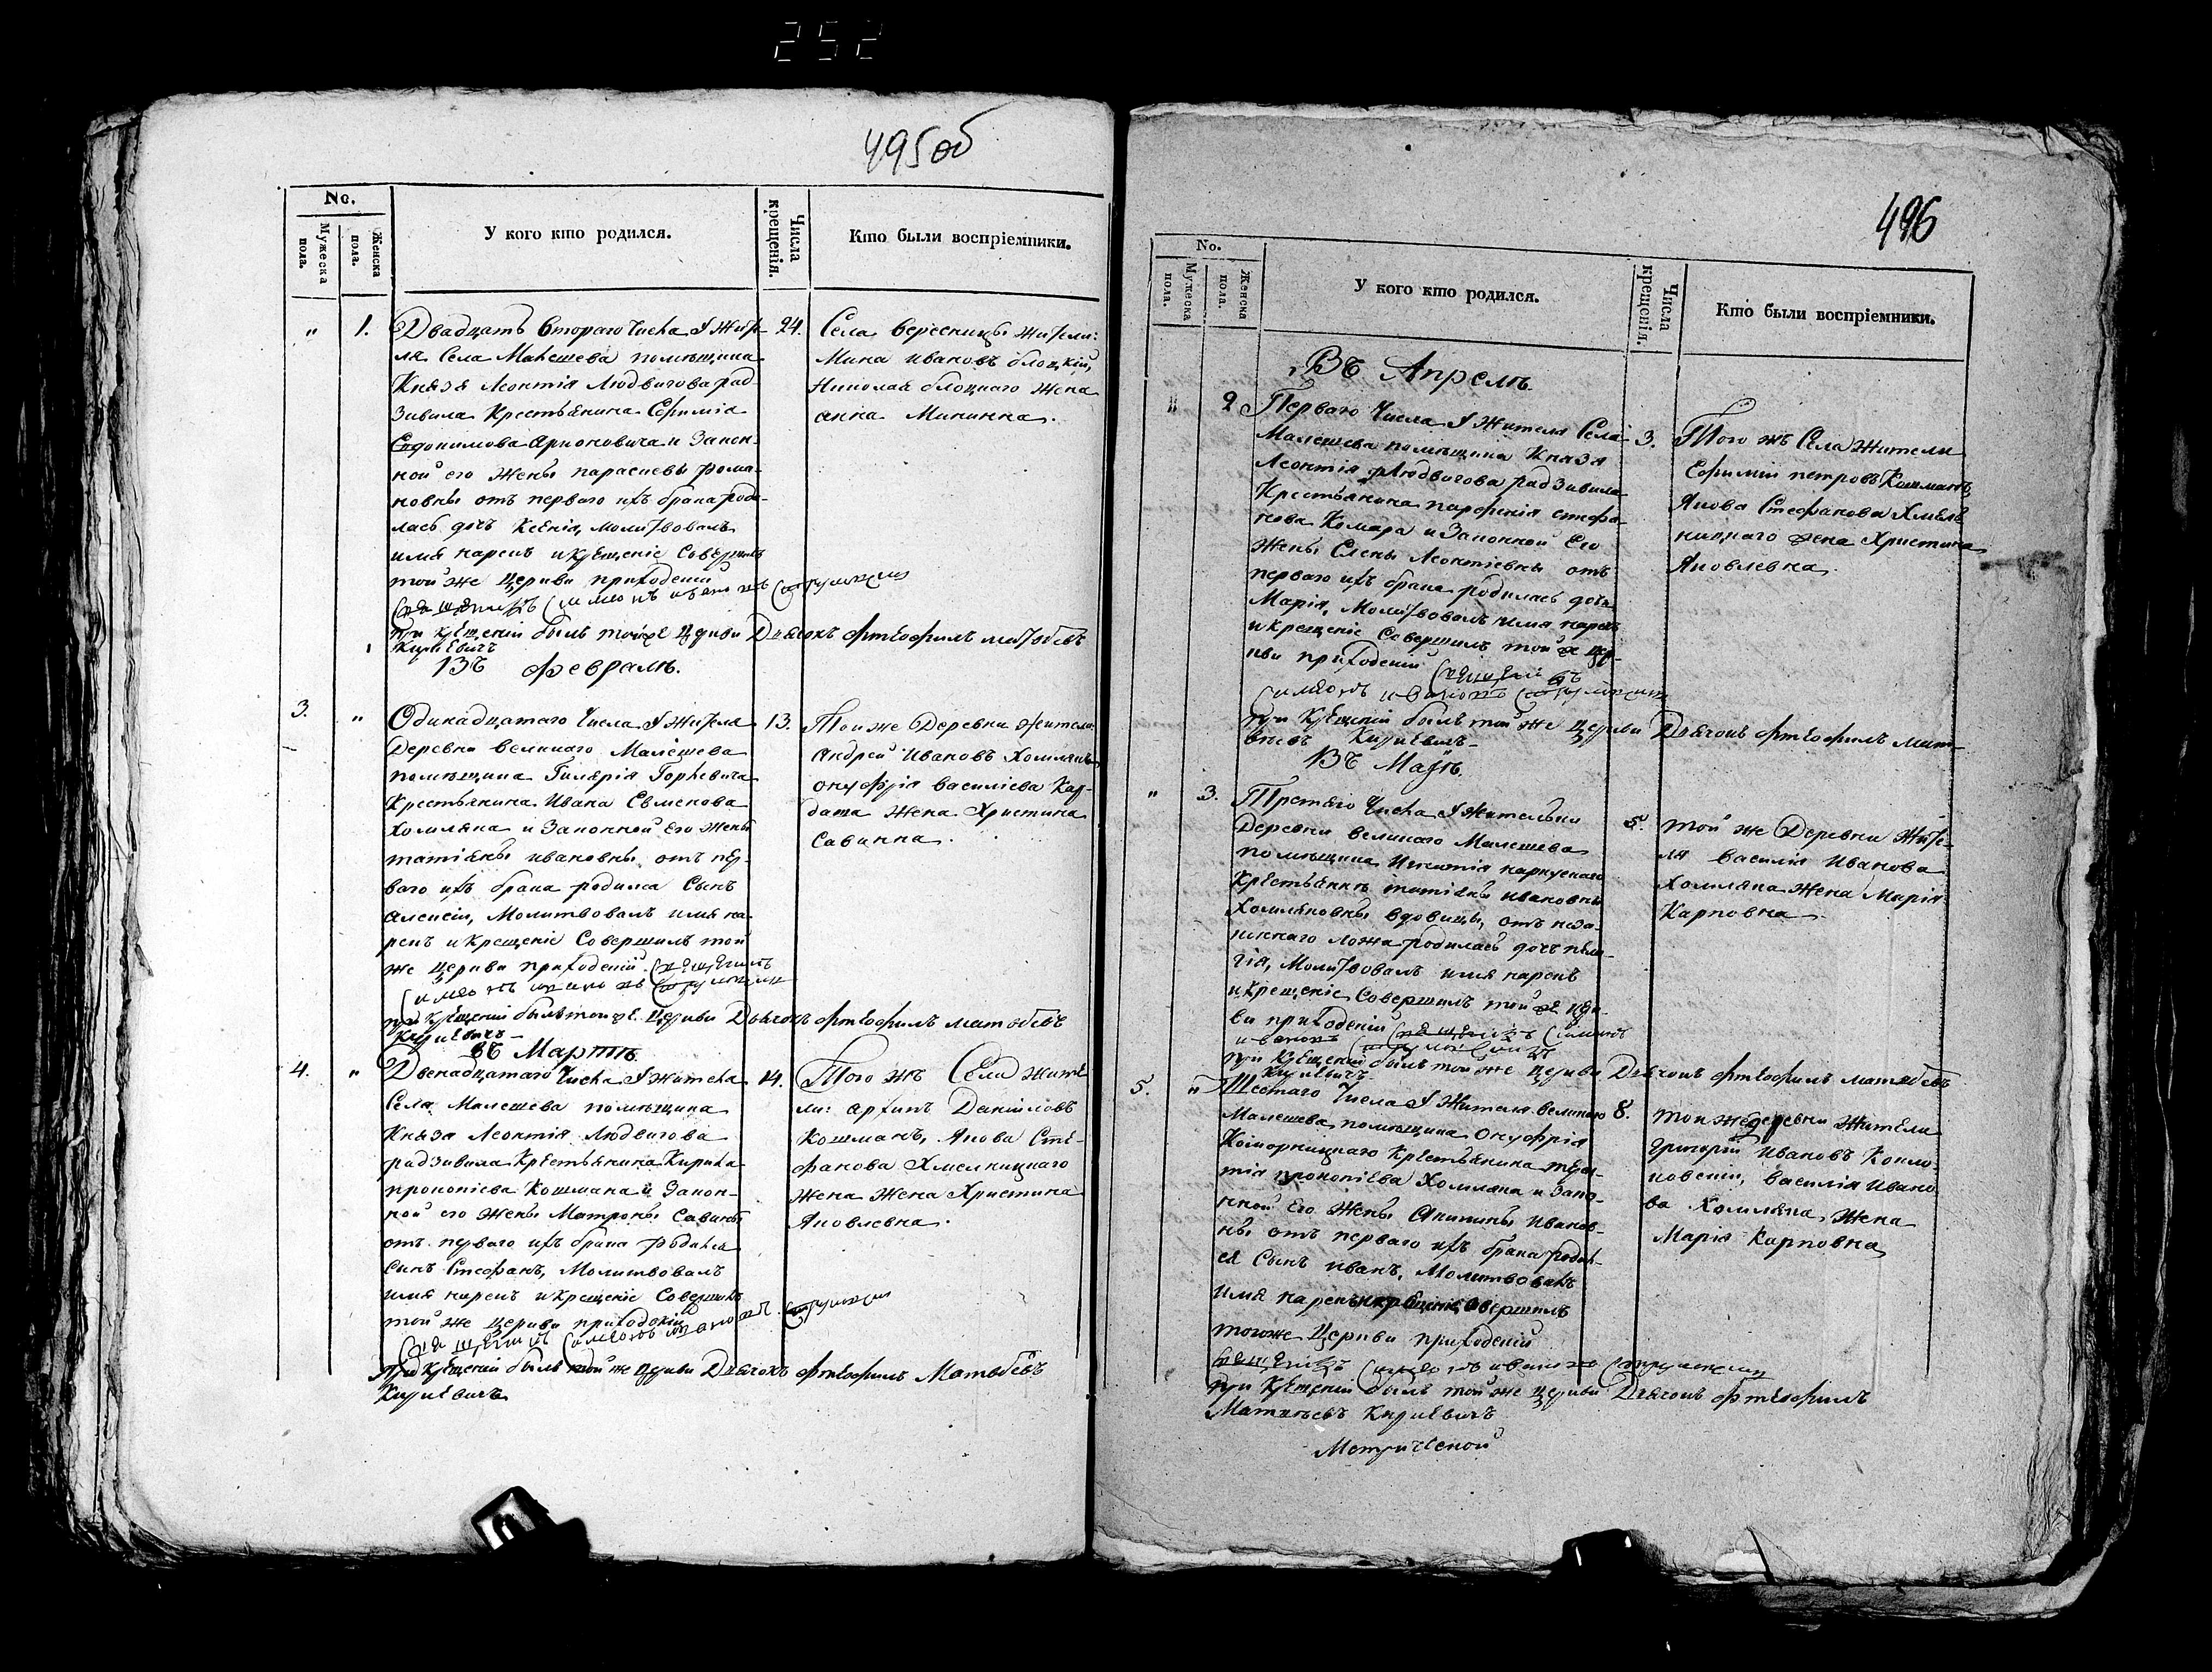 252
495об
No.
Мужеска пола.
Женска пола.
У кого кто родился.
Числа крещенія.
Кто были воспріемники.
" 1. Двадцать втораго числа у жите- 24.
ля Села Малешева помѣщика
Князя Леонтія Людвигова Рад-
зивила Крестьянина Ефимія
Евдокимова и Закон-
ной его жены Параскевы Рома-
новны отъ перваго ихъ брака роди-
лась дочь Ксенія, молитвовалъ
имя нарекъ и крещеніе Совершилъ
той же Церкви приходскій
Священникъ Симеонъ Ивановъ
при крещеніи былъ той же Церкви Дьячокъ Фтеофилъ Матвѣевъ
Села Вересницы жители:
Мина Ивановъ Блоцкій,
Николая Блоцкаго жена
Анна Минина.
ВЪ Февралѣ.
3. " Одинадцатаго Числа у жителя 13.
Деревни великаго Малешева
помѣщика Гилярія
Крестьянина Ивана Евменова
Холиляка и Законной его жены
татіяны ивановны отъ пер-
ваго ихъ брака родился Сынъ
Алексій, Молитвовалъ имя на-
рекъ и Крещеніе Совершилъ той
же Церкви приходскій Священникъ
Симеонъ Ивановъ
при крещеніи былъ той же Церкви Дьячокъ Фтеофилъ Матвѣевъ
Той же Деревни жители
Андрей Ивановъ Холилякъ
Онуфрія Василіева Кар-
даша Жена Христина
Савина.
ВЪ Мартѣ.
4. " Двенадцатаго Числа у жителя 14.
Села Малешева помѣщика
Князя Леонтія Людвигова
радзивила Крестьянина Кирила
прокопіева Кошмана и Закон-
ной его жены Матроны Савины
отъ перваго ихъ брака родился
Сынъ Стефанъ, Молитвовалъ
имя нарекъ и крещеніе Совершилъ
той же Церкви приходскій
Священникъ Симеонъ Ивановъ
при крещеніи былъ той же Церкви Дьячокъ Фтеофилъ Матвѣевъ
Того жъ Села жите
ли: Архипъ Даниловъ
Кошманъ, Якова Сте-
фанова Хмелницкаго
жена жена Христина
Яковлевна.
496
No.
Мужеска пола.
Женска пола.
У кого кто родился.
Числа крещенія.
Кто были воспріемники.
ВЪ Апрелѣ.
" 2 Перваго Числа у жителя Села 3.
Малешева помѣщика Князя
Леонтія Людвигова радзивила
Крестьянина парфенія стефа-
нова Комара и Законной Его
жены Елены Леонтіевны отъ
перваго ихъ брака родилась дочь
Марія, Молитвовалъ имя нарекъ
и крещеніе Совершилъ той же Цер-
кви приходскій Священникъ
Симеонъ Ивановъ
при Крещеніи былъ той же Церкви Дьячокъ Фтеофилъ Мат-
Того жъ Села жители
Ефимій петровъ Кошманъ,
Якова Стефанова Хмель
ницкаго жена Христина
Яковлевна.
ВЪ Маѣ.
" 3. Третяго Числа у жительки 5.
Деревни великаго Малешева
помѣщика
Крестьянки татіяны ивановны
Холиляковны вдовицы, отъ неза-
коннаго ложа родилась дочь пела-
гія, Молитвовалъ имя нарекъ
и крещеніе Совершилъ той же Цер-
кви приходскій Священникъ Симеонъ
Ивановъ
при Крещеніи былъ той же Церкви Дьячокъ Фтеофилъ Матвѣевъ
той же Деревни жите-
ля Василія Иванова
Холиляка жена Марія
Карповна.
5. " Шестаго Числа у жителя великаго 8.
Малешева помѣщика Онуфрія
Крестьянина терен-
тія прокопіева Холиляка и зако-
нной Его жены Акилины Иванов-
ны отъ перваго ихъ брака родил-
ся Сынъ иванъ, Молитвовалъ
имя нарекъ и крещеніе Совершилъ
тогоже Церкви приходскій
Священникъ Симеонъ Ивановъ
при Крещеніи былъ той же Церкви Дьячокъ Фтеофилъ
Матвѣевъ
той же деревни жители
Григорій Ивановъ
Василія Ивано
ва Холиляка жена
Марія Карповна
Метрической